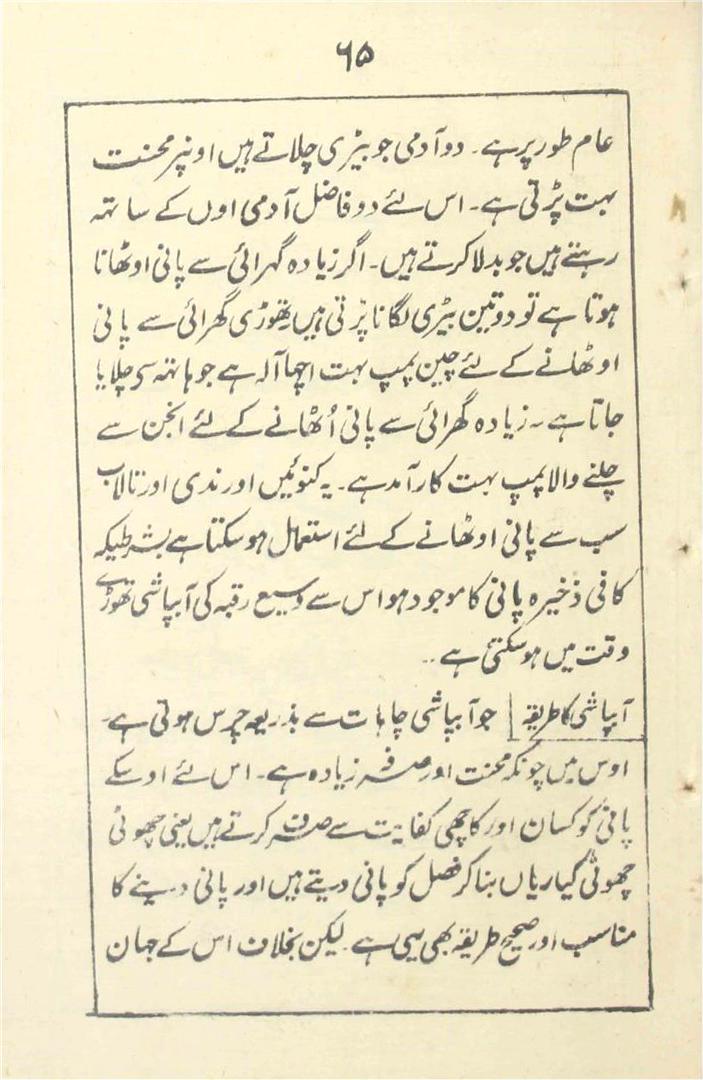 ۶۵
عام طور پر ہے۔ دو آدمی جو بیڑی چلاتے ہیں اونپر محنت
بہت پڑتی ہے۔ اس لئے دو فاضل آدمی اوں کے ساتہہ
رہتے ہیں جو بدلا کرتے ہیں۔ اگر زیادہ گہرائی سے پانی اوٹھانا
ہوتا ہے تو دو تین بیڑی لگانا پڑتی ہیں تھوڑی گھرائی سے پانی
اوٹھانے کے لئے چین پمپ بہت اچھا آلہ ہے جو ہاتہہ سے چلایا
جاتا ہے۔ زیادہ گھرائی سے پانی اُٹھانے کے لئے انجن سے
چلنے والا پمپ بہت کارآمد ہے۔ یہ کنوئیں اور ندی اور تالاب
سب سے پانی اوٹھانے کے لئے استعمال ہو سکتا ہے بشرطیکہ
کافی ذخیرہ پانی کا موجود ہو اس سے وسیع رقبہ کی آبپاشی تھوڑے
وقت میں ہو سکتی ہے۔
آبپاشی کا طریقہ | جو آبپاشی چاہات سے بذریعہ چرس ہوتی ہے۔
اوس میں چونکہ محنت اور صرفہ زیادہ ہے۔ اس لئے اوسکے
پانی کو کسان اور کاچھی کفایت سے صرف کرتے ہیں یعنی چھوٹی
چھوٹی کیاریاں بنا کر فصل کو پانی دیتے ہیں اور پانی دینے کا
مناسب اور صحیح طریقہ بھی یہی ہے لیکن بخلاف اس کے جہان